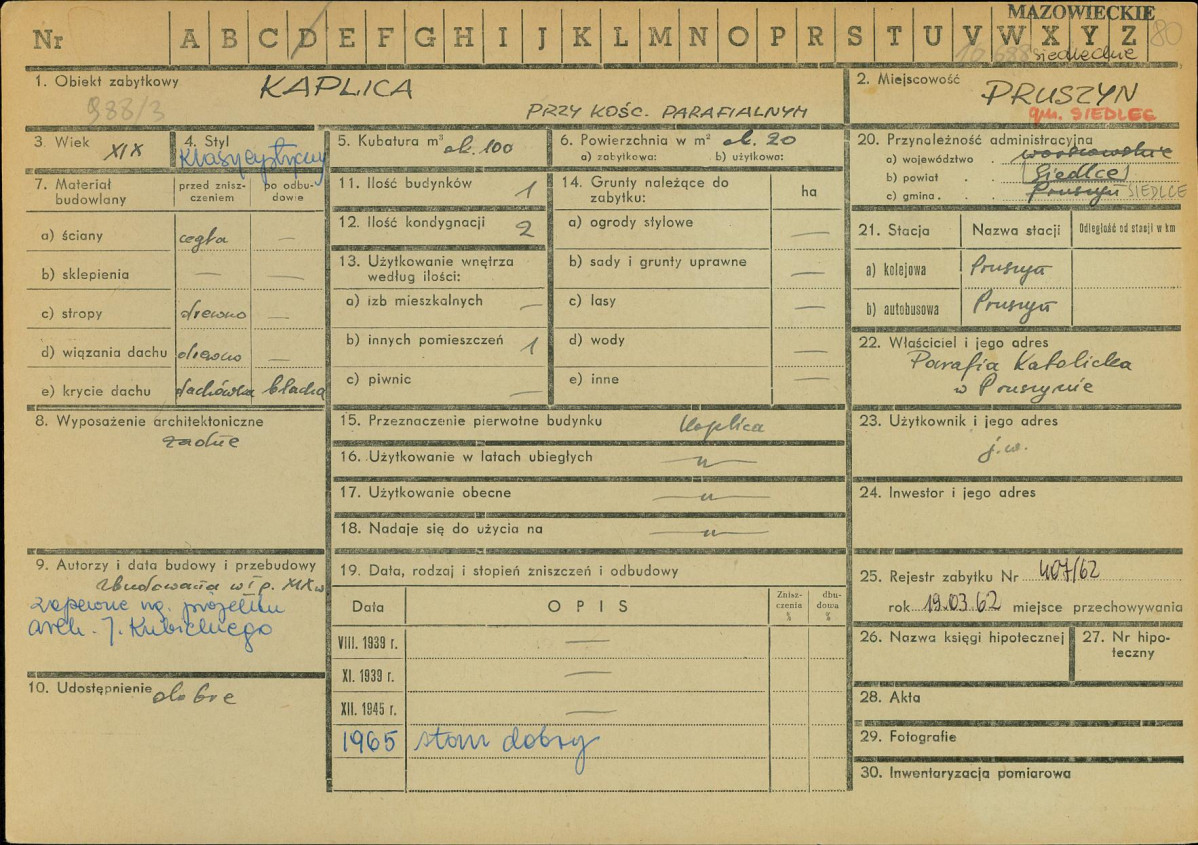 MAZOWIECKIE
Nr A B C D E F G H I J K L M N O P R S T U V W X Y Z 80
siedleckie
1. Obiekt zabytkowy KAPLICA
988/3 PRZY KOŚC. PARAFIALNYM
2. Miejscowość PRUSZYN
gm. SIEDLEC
3. Wiek XIX
4. Styl Klasycystyczny
5. Kubatura m³ ok. 100
6. Powierzchnia w m² ok. 20
a) zabytkowa: b) użytkowa:
7. Materiał budowlany
przed znisz-czeniem
po odbu-dowie
a) ściany cegła —
b) sklepienia — —
c) stropy drewno —
d) wiązania dachu drewno —
e) krycie dachu dachówka blacha
8. Wyposażenie architektoniczne
żadne
9. Autorzy i data budowy i przebudowy
zbudowana w I p. XIX w
zapewne wg. projektu
arch. J. Kubickiego
10. Udostępnienie dobre
11. Ilość budynków 1
12. Ilość kondygnacji 2
13. Użytkowanie wnętrza
według ilości:
a) izb mieszkalnych —
b) innych pomieszczeń 1
c) piwnic —
14. Grunty należące do
zabytku:
ha
a) ogrody stylowe —
b) sady i grunty uprawne —
c) lasy —
d) wody —
e) inne —
15. Przeznaczenie pierwotne budynku kaplica
16. Użytkowanie w latach ubiegłych — " —
17. Użytkowanie obecne — " —
18. Nadaje się do użycia na — " —
19. Data, rodzaj i stopień zniszczeń i odbudowy
Data OPIS Znisz-czenia % dbu-dowa %
VIII. 1939 r. —
XI. 1939 r. —
XII. 1945 r. —
1965 stan dobry
20. Przynależność administracyjna
a) województwo . warszawskie
b) powiat . . (Siedlce)
c) gmina . . . Pruszyn SIEDLCE
21. Stacja Nazwa stacji Odległość od stacji w km
a) kolejowa Pruszyn
b) autobusowa Pruszyn
22. Właściciel i jego adres
Parafia Katolicka
w Pruszynie
23. Użytkownik i jego adres
j.w.
24. Inwestor i jego adres
25. Rejestr zabytku Nr 407/62
rok 19.03.62 miejsce przechowywania
26. Nazwa księgi hipotecznej
27. Nr hipo-
teczny
28. Akta
29. Fotografie
30. Inwentaryzacja pomiarowa